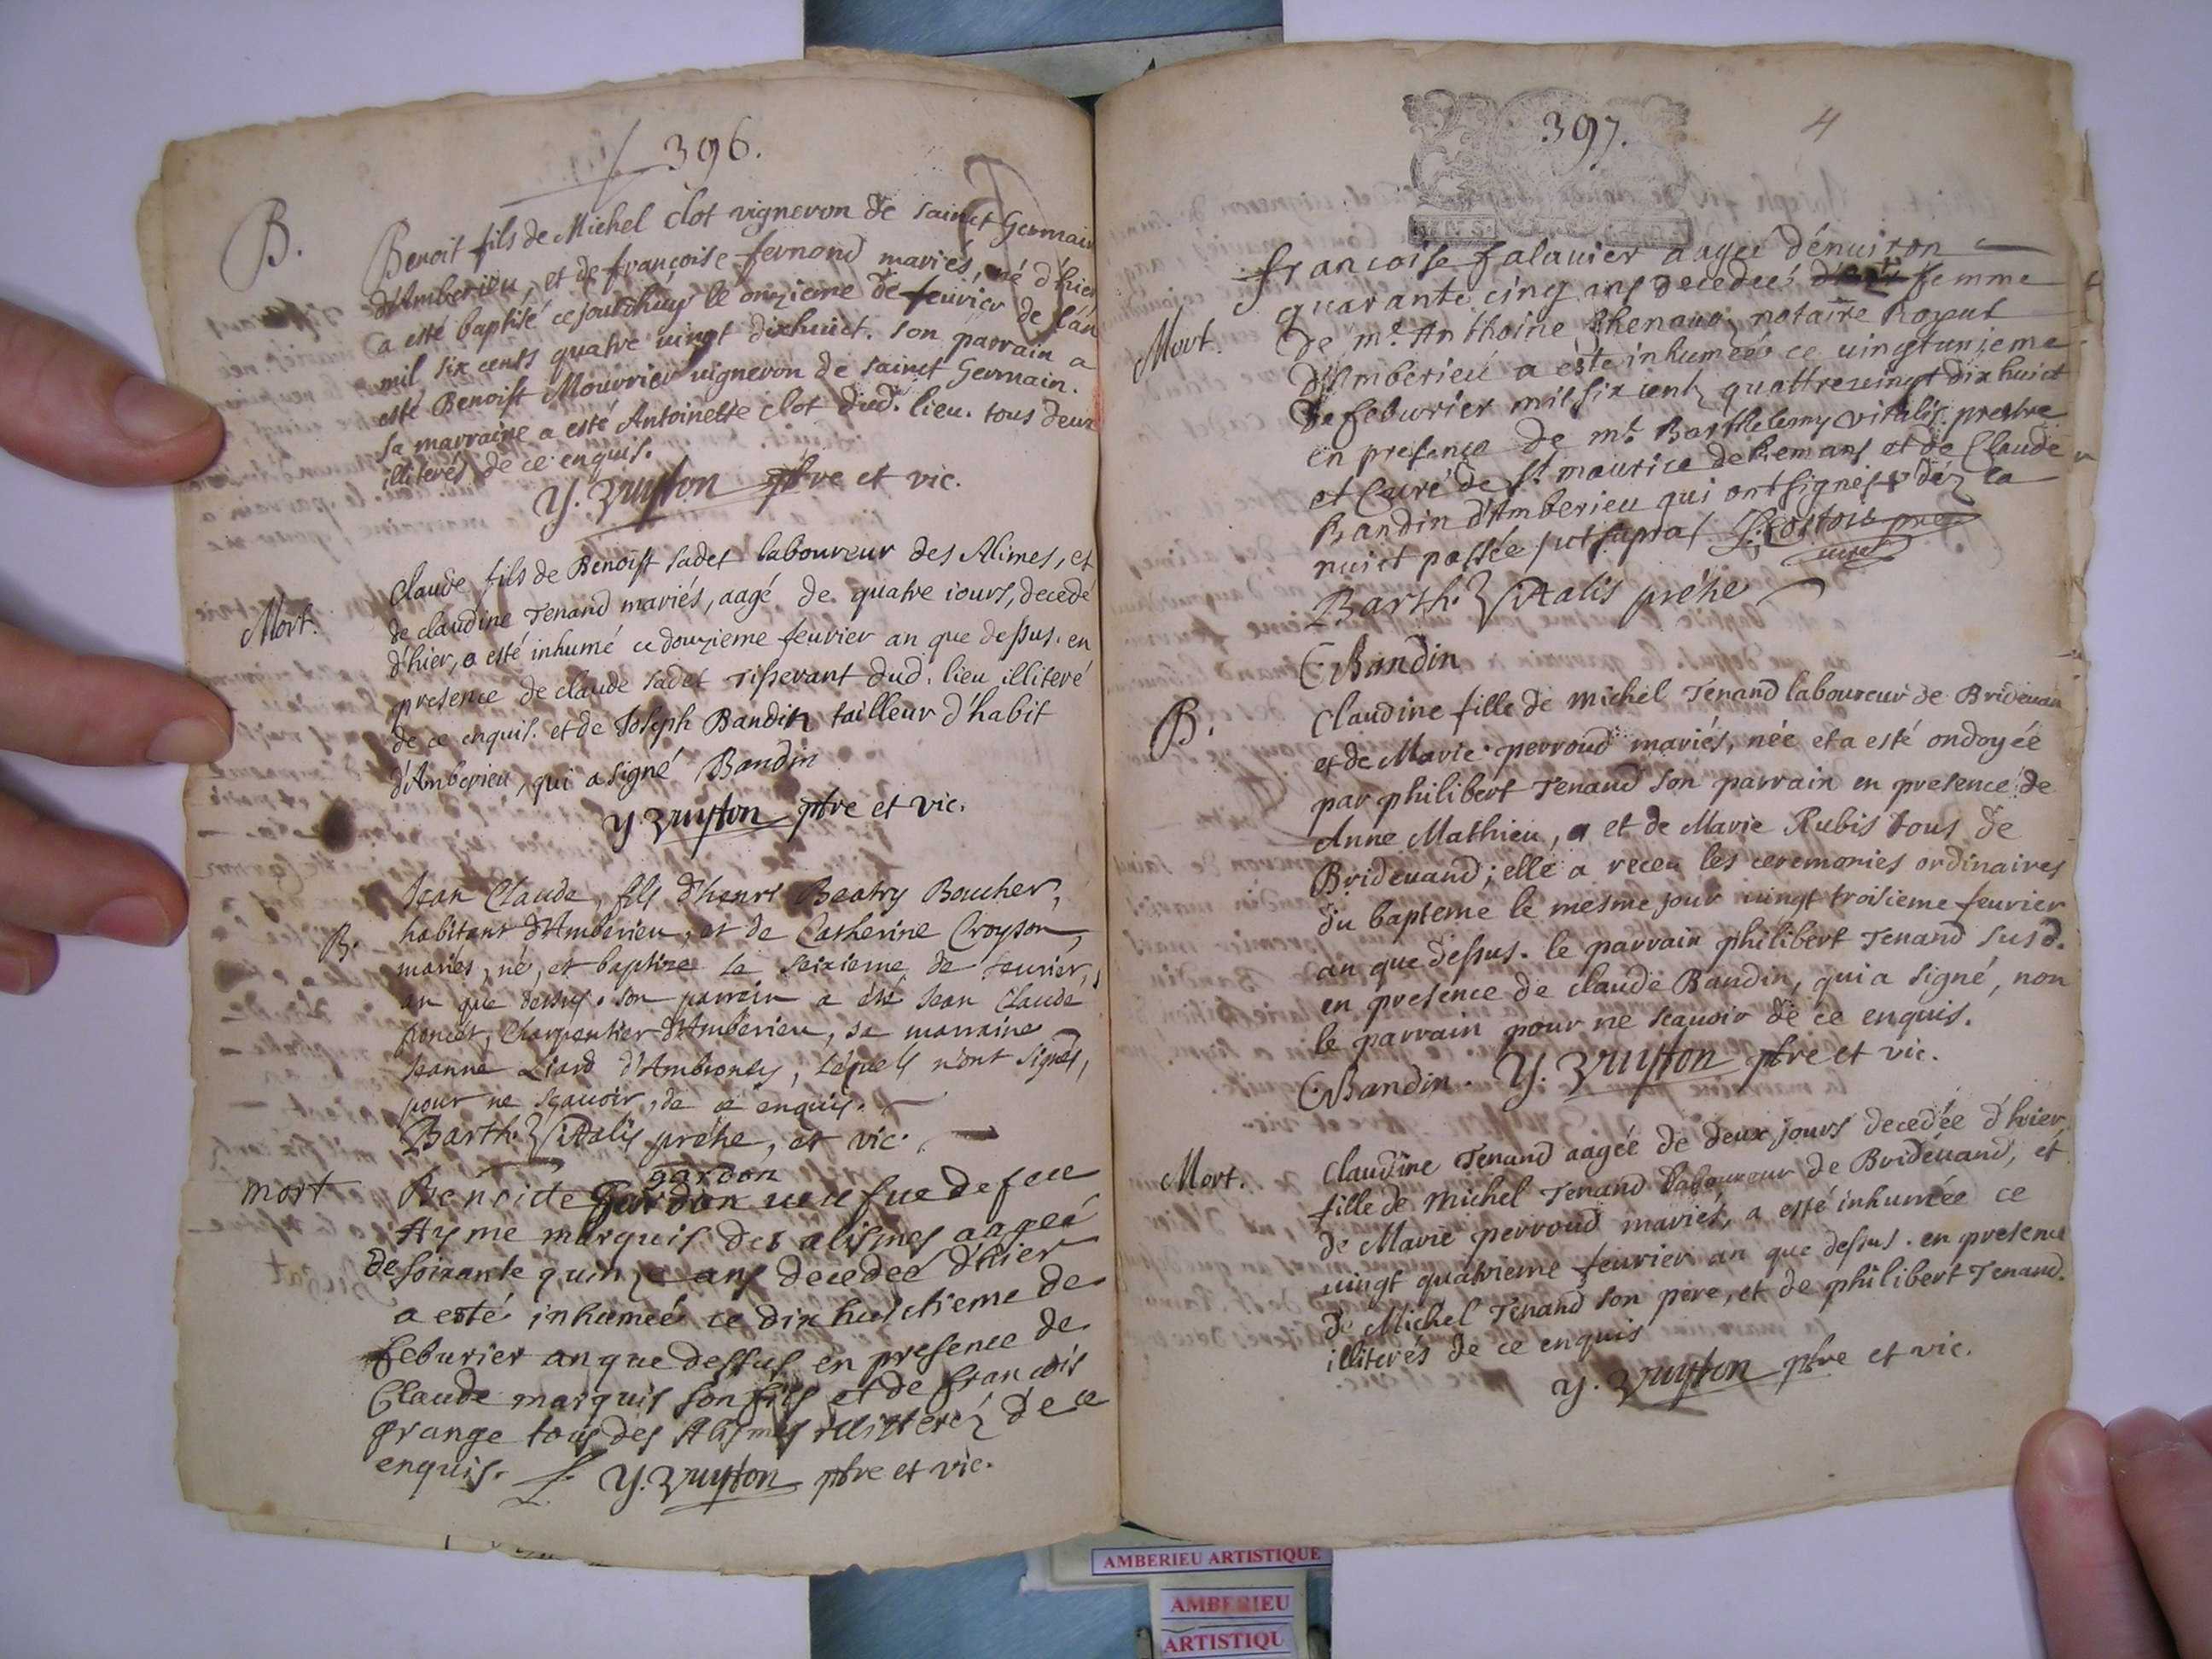 396.
B.
Benoit fils de Michel Clot vigneron de sainct Germain
d'Amberieu, et de françoise fernond mariés, né d'hier
a esté baptisé cejourdhuy le onzieme de feuvier de l'an
mil six cents quatre vingt dixhuict. son parrain a
esté Benoist Mourrier vigneron de sainct Germain.
sa marraine a esté Antoinette Clot dud. lieu. tous deux
illiterés de ce enquis.
Y. Zuyston ptre et vic.
Mort.
Claude fils de Benoist sadet laboureur des Alimes, et
de claudine Tenand mariés, aagé de quatre iours, decedé
d'hier, a esté inhumé ce douzieme feuvrier an que dessus. en
presence de claude sadet tisserant dud. lieu illiteré
de ce enquis. et de Joseph Bandin tailleur d'habit
d'Amberieu, qui a signé Bandin
Y Zuyston ptre et vic.
B.
Jean Claude, fils d'henri Beatry Boucher,
habitant d'Amberieu, et de Catherine Croyson,
mariés, né, et baptize le seizieme de feuvrier,
an que dessus. son parrein a été Jean Claude
poncet, Charpentier d'Amberieu, sa marraine
Jeanne Liard d'Ambroney, léquels n'ont signés,
pour ne scauoir, de ce enquis.
Barth. Vitalis prêhe, et vic.
gardon
mort
Benoite Gardon ueufue de feu
Ayme marquis des alismes aageé
de soixante quinze ans decedeé d'hier
a esté inhumeé ce dix huictieme de
feburier an que dessus en presence de
Claude marquis son fils et de francois
grange tous des Alismes illitteréz de ce
enquis. Y. Zuyston ptre et vic.
397.
4
Mort.
francoise falauier aageé dénuiron
quarante cinq ans decedeé femme
de mr. Anthoine Thenand notaire Royal
d'Amberieu a este inhumeé ce uingtunieme
de feburier mil six centz quattreuingt dix huict
en presence de mr. Barthelemy vitalis prestre
et Curé de st. maurice de Remans et de Claude
Bandin d'Amberieu qui ont signés déz la
nuict passée ut supra
Barth. Vitalis prêhe
C Bandin
B.
Claudine fille de Michel Tenand laboureur de Brideuan
et de Marie perroud mariés, née et a esté ondoyée
par philibert Tenand son parrain en presence de
Anne Mathieu, et de Marie Rubis tous de
Brideuand; elle a receu les ceremonies ordinaires
du bapteme le mesme jour uingt troisieme feuvrier
an que dessus. le parrain philibert Tenand susd.
en presence de claude Bandin, qui a signé, non
le parrain pour ne scauoir de ce enquis.
C Bandin. Y. Zuyston ptre et vic.
Mort.
Claudine Tenand aagée de deux jours decedée d'hier,
fille de Michel Tenand laboureur de Bridéuand, et
de Marie perroud mariés, a esté inhumée ce
uingt quatrieme feuvrier an que dessus. en presence
de Michel Tenand son pere, et de philibert Tenand.
illiterés de ce enquis
Y. Zuyston ptre et vic.
AMBERIEU ARTISTIQUE
AMBERIEU
ARTISTIQU